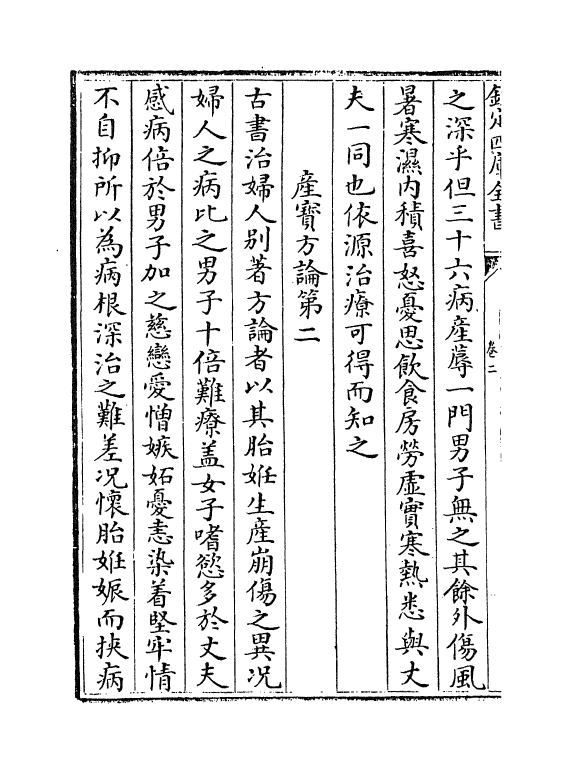 欽定四庫全書
卷二
之深乎但三十六病產蓐一門男子無之其餘外傷風
暑寒濕内積喜怒憂思飲食房勞虛實寒熱悉與丈
夫一同也依源治療可得而知之
產寳方論第二
古書治婦人别著方論者以其胎姙生產崩傷之異况
婦人之病比之男子十倍難療盖女子嗜慾多於丈夫
感病倍於男子加之慈戀愛憎嫉妬憂恚染着堅牢情
不自抑所以為病根深治之難差况懷胎姙娠而挾病